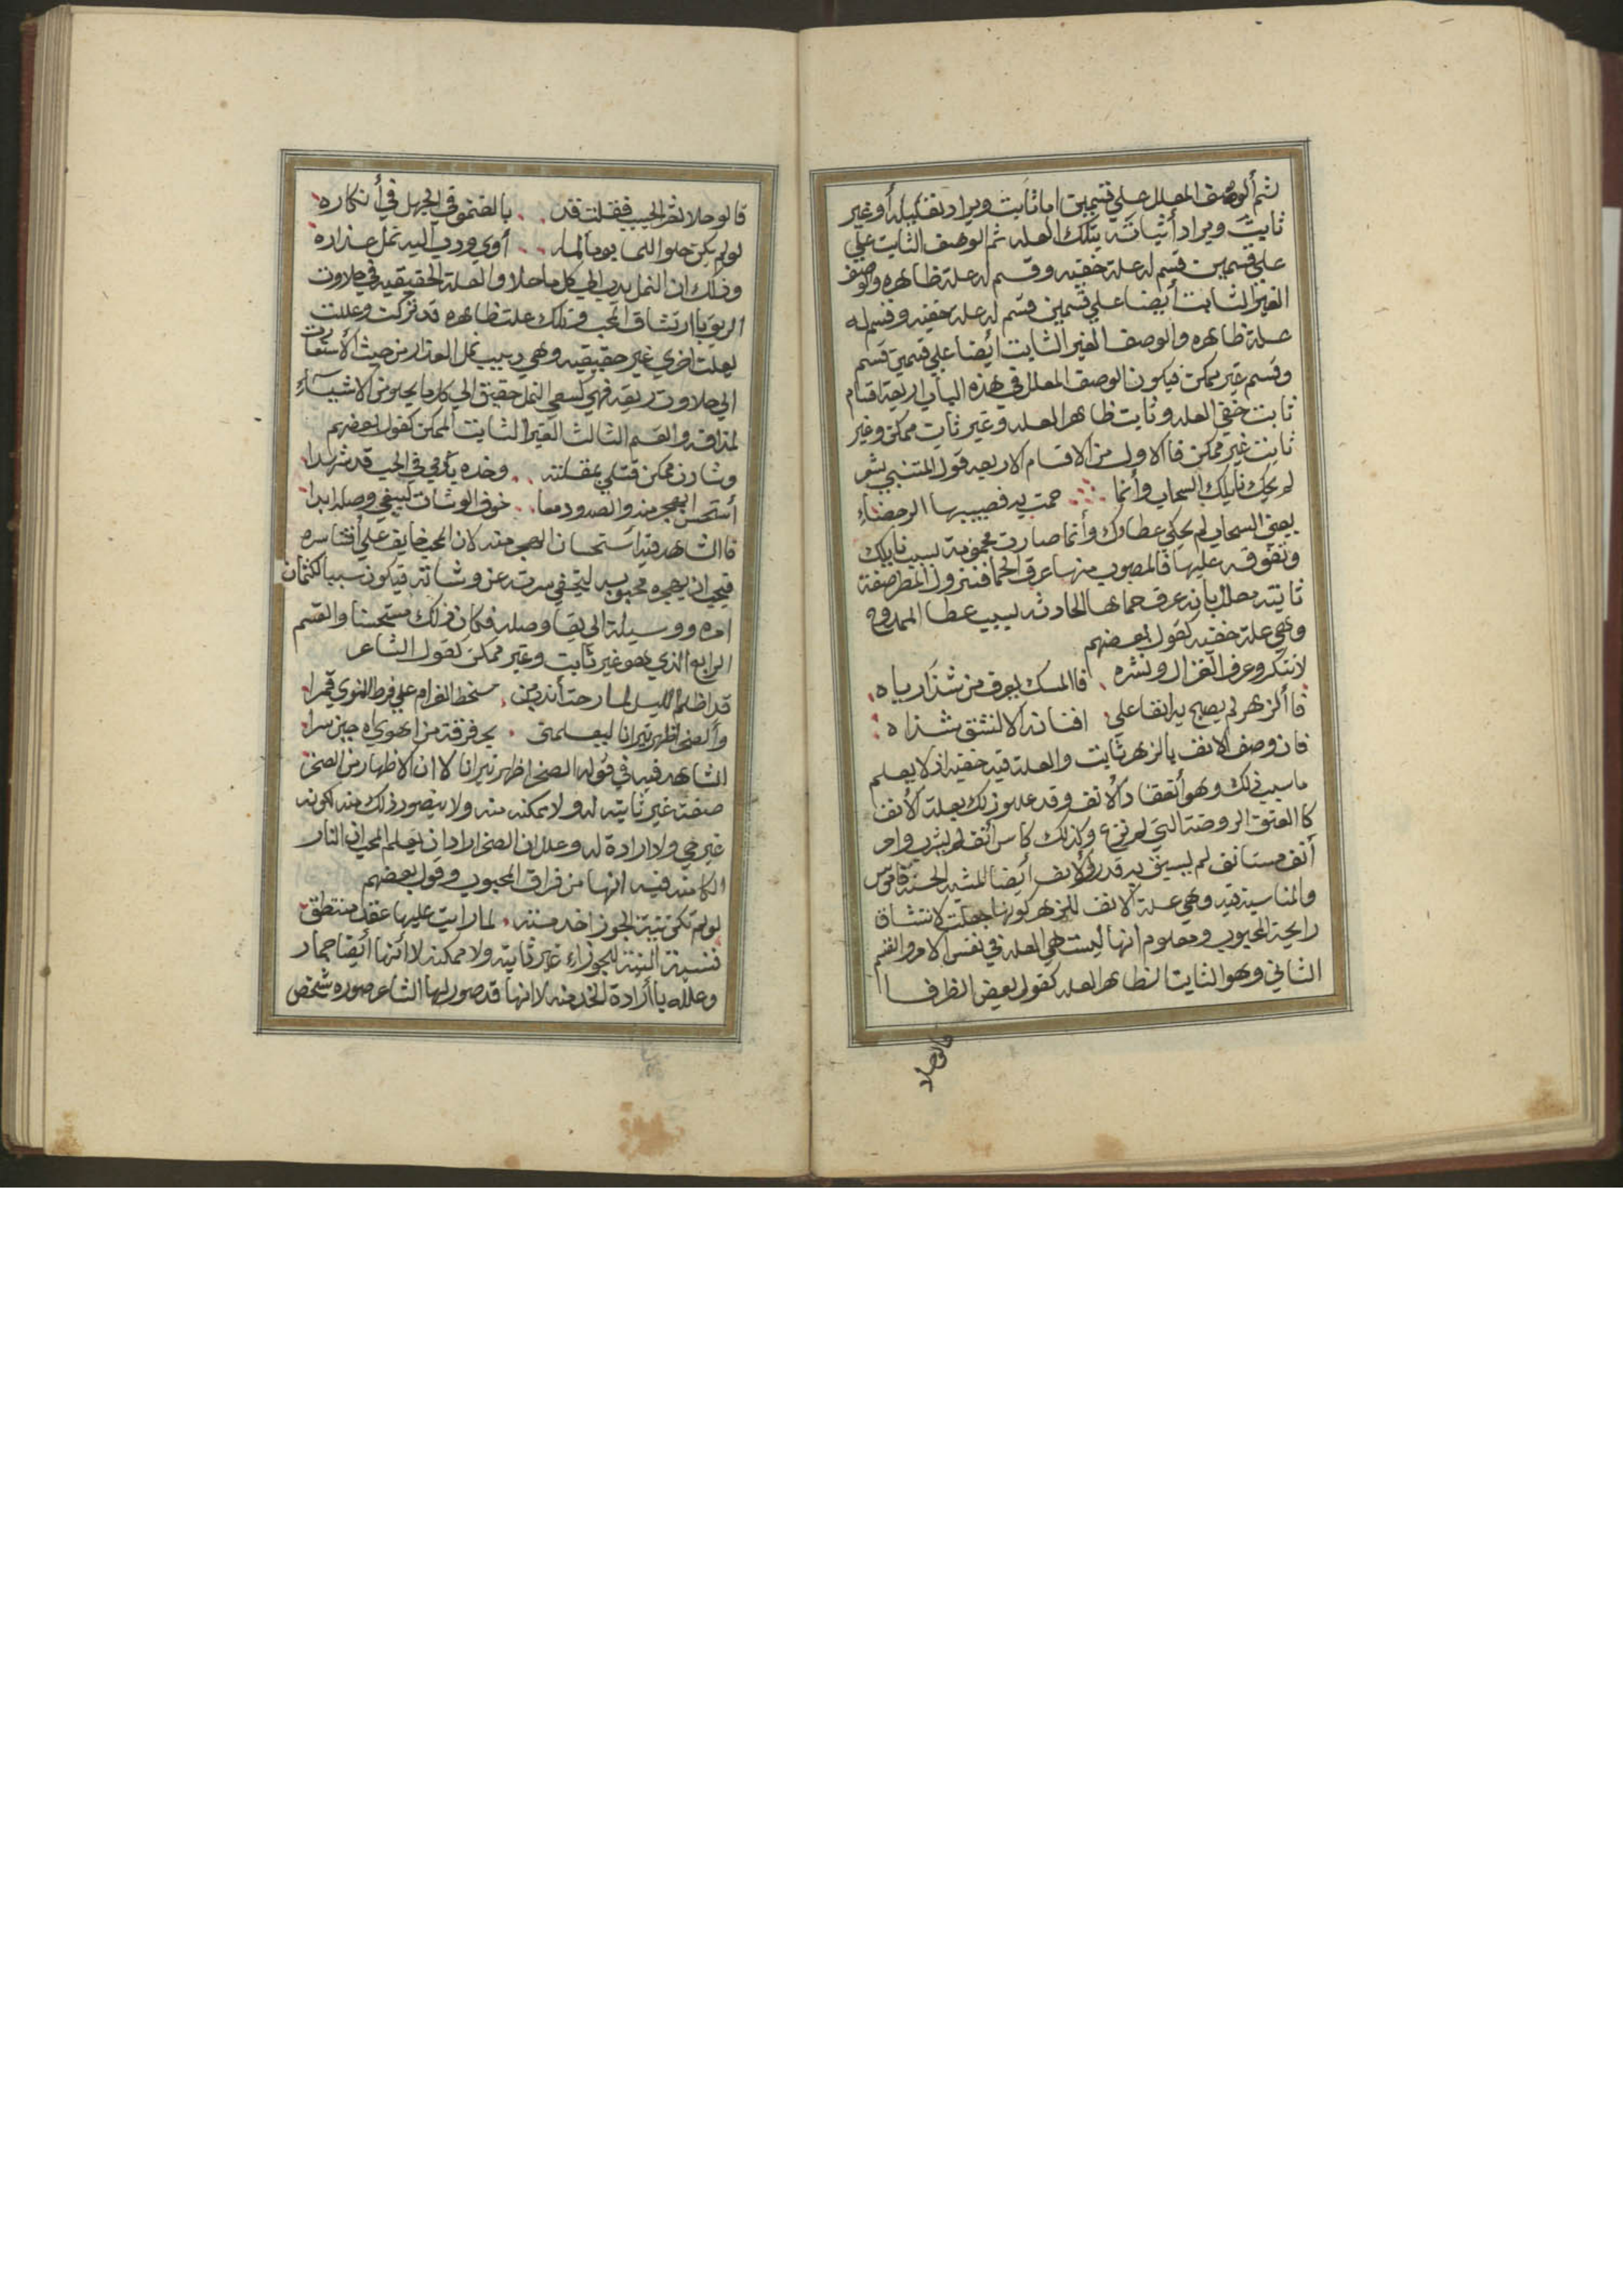 ثم ألوصف المعلل علي قسمين اما ثابت ويراد تعليله أو غير
ثابت ويراد أثباته بتلك العله ثم الوصف الثابت علي
علي قسمين قسم له علة خفيه وقسم له علة ظاهره والوصف
الغير الثابت أيضا علي قسمين قسم له علة خفيه وقسم له
علة ظاهره والوصف الغير الثابت أيضا علي قسمين قسم
وقسم غير ممكن فيكون الوصف المعلل في هذه الباب اربعة اقسام
ثابت خفي العله وثابت ظاهر العله وغير ثابت ممكن وغير
ثابت غير ممكن فا الاول من الاقسام الاربعه قول المتنبي شعر
لم يحك نايلك السحاب وأنما حمت به فصبيبها الرحضاء
يعني السحاب لم يحكي عطاوك وأنما صارت محمومة بسبب نايلك
وتفوقه عليها فالمصبوب منها عرق الحما فنزول المطر صفة
ثابته معلل بانه عرق حماها الحادثه بسبب عطا الممدوح
وهي علة خفيه كقول بعضهم
لا تنكرو عرف الغزال ونشره فا المسك يعرف من شذا رياه
فا ألزهر لم يصبح به انفا علي افنانه الا لنشق شذاه
فان وصف الانف بالزهر ثابت والعلة فيه خفيه اذ لا يعلم
ما سبب ذلك وهو أنعقاد الانف وقد عللو ذلك بعلة الأنف
كا العنق الروضة التي لم ترع وكذلك كاس أنف لم يشرب وامر
أنف مستانف لم يسبق به قدر والانف أيضا للمشيه الحسنة قاموس
والمناسبة فيه وهي علة الانف للزهر كونها جعلت لانتشاق
رايحة المحبوب ومعلوم انها ليست هي العله في نفس الامر والقسم
الثاني وهو الثابت الظاهر العله كقول بعض الظرفا
قالو حلا
قالو حلا ثغر الحبيب فقلت قد بالغتمو في الجهل في أنكاره
لو لم يكن حلو اللما يوما لما أوي ودب اليه نمل عذاره
وذلك ان النمل يدب الي كل ما حلا والعلة الحقيقيه في حلاوت
الريق باارتشاق المحب وتلك علت ظاهره قد تركت وعللت
بعلت اخري غير حقيقيه وهي دبيب نمل العذار من حيث الأستعارت
الي حلاوت ريقه فهي كسعي النمل حقيق الي كل ما يحلو من الاشيآء
لمذاقه والقسم الثالث الغير الثابت الممكن كقول بعضهم
وشادن ممكن قتلي بمقلته وخده يا دمي في الحب قد شهدا
أستحسن الهجر منه والصدود معا خوف الوشات ليبقي وصله ابدا
فا الشاهد فيه أستحسان الهجر منه لان المحب خايف علي أفشا سره
فيحب ان يهجره محبوبه ليختفي سرته عن وشاته فيكون سببا لكتمان
امره ووسيلة الي بقا وصله فكان ذلك مستحسنا والقسم
الرابع الذي هو غير ثابت وغير ممكن كقول الشاعر
قد اظلم الليل لما رحت أندب من سخط الغرام علي فرط النوي قمرا
وألصخر اظهر نيرانا ليعلمني بحر فرقة من اهوي اه حين سرا
الشاهد فيه في قوله الصخر اظهر نيرانا لا ان الاظهار من الصخر
صفة غير ثابته له ولا ممكنه منه ولا يتصور ذلك منه لكونه
غير حي ولا ارادة له وعلل ان الصخر اراد ان يعلم المحب ان النار
الكامنه فيه انها من فراق المحبوب وقول بعضهم
لو لم تكن نية الجوزا خدمته لما رايت عليها عقد منتطق
فنسبة النية للجوزاء غير ثابته ولا ممكنه لا أنها أيضا جماد
وعلله با أرادة الخدمه لا انها قد صور لها الشاعر صوره شخص